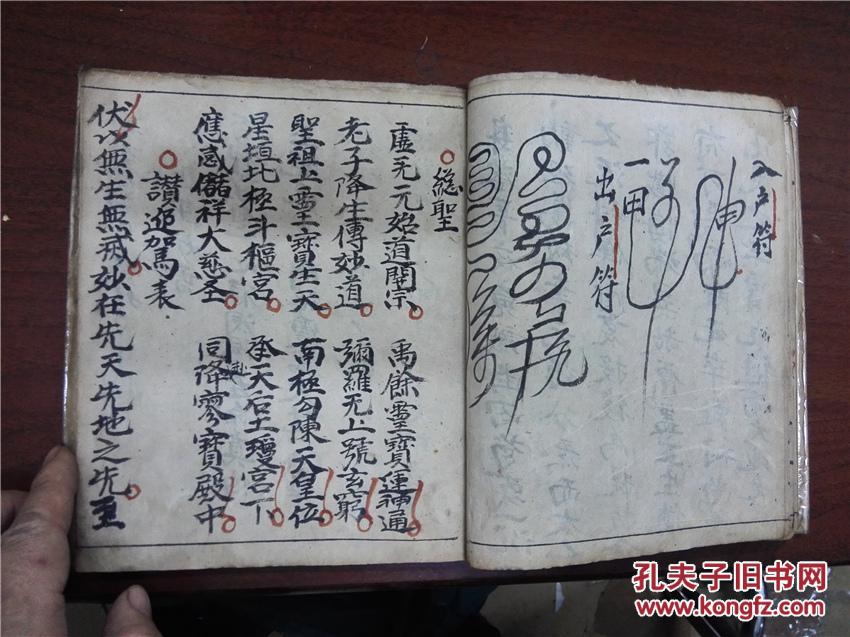 入户符
出户符
總聖
虚无元始道開宗 禹餘靈寶運神通
老子降生傳妙道 彌羅无上號玄窮
聖祖上靈寶生天 南極勾陳天皇位
星垣北極斗樞宮 承天后土瓊宮下
應感儲祥大慈圣 同降寥寶殿中
讃進駕表
伏以無生無戒妙在先天先地之先至
孔夫子旧书网
www.kongfz.com